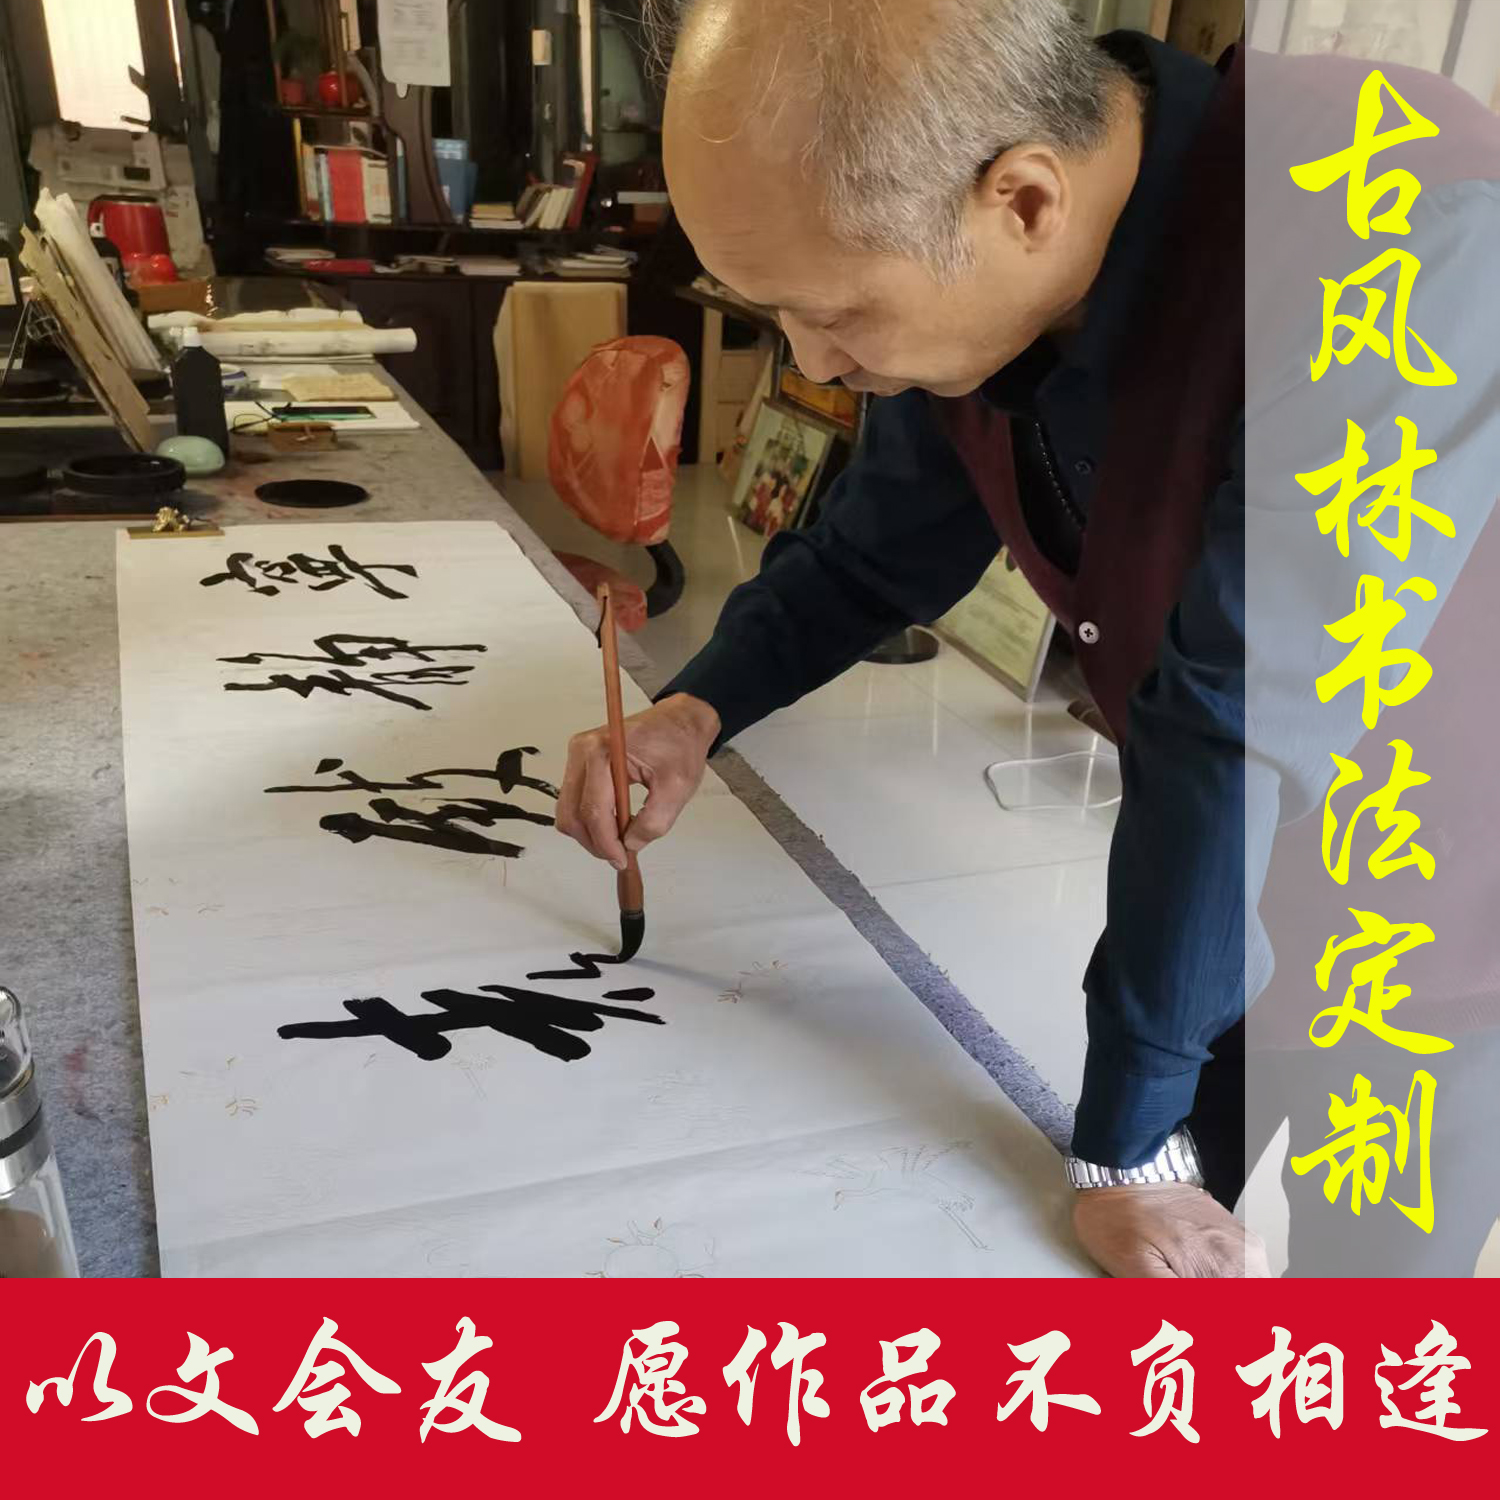 古风林书法定制
以文会友 愿作品不负相逢